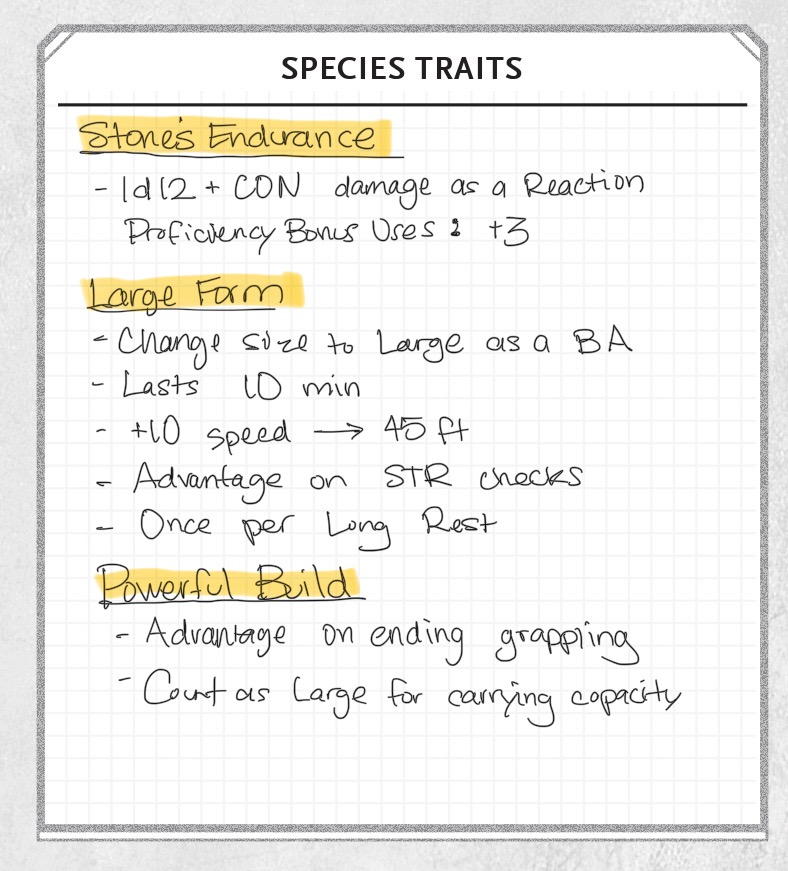 SPECIES TRAITS
Stone's Endurance
- 1d12 + CON damage as a Reaction
Proficiency Bonus Uses : +3
Large Form
- Change size to Large as a BA
- Lasts 10 min
- +10 speed → 45 ft
- Advantage on STR checks
- Once per Long Rest
Powerful Build
- Advantage on ending grappling
- Count as Large for carrying capacity